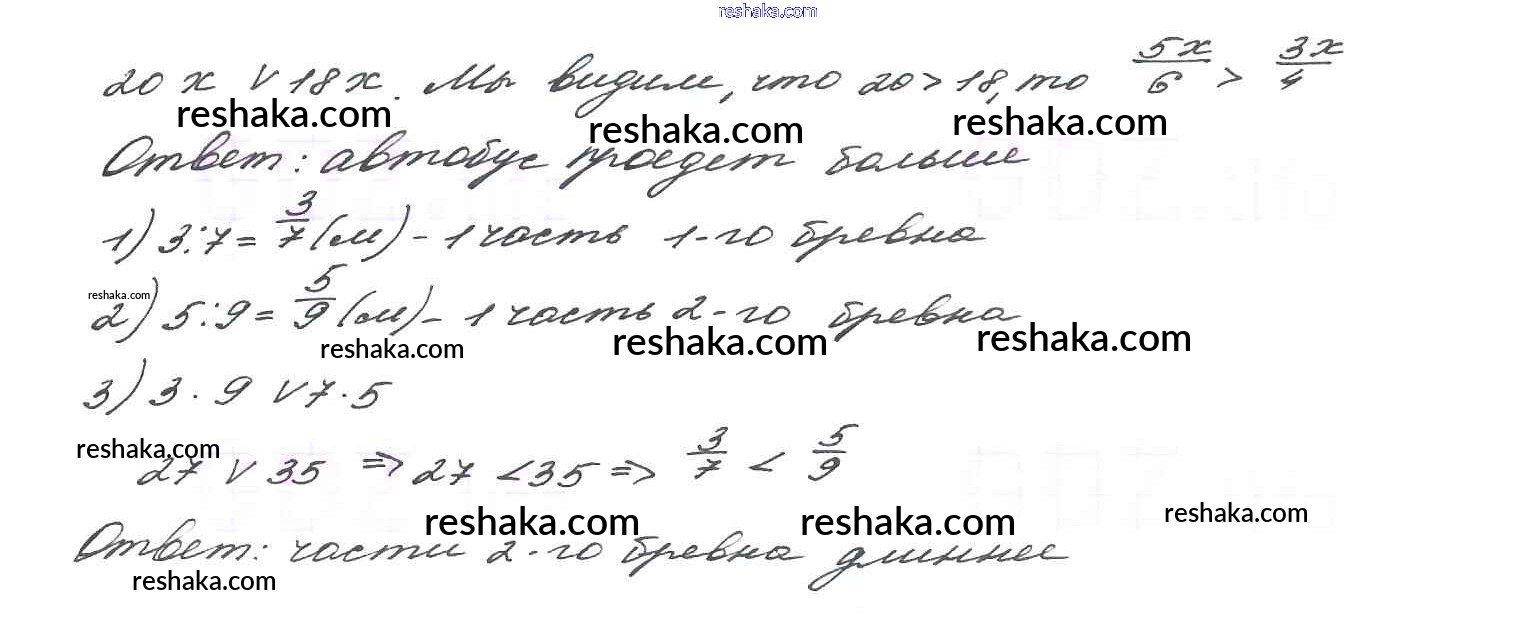 reshaka.com
20x V 18x. Мы видим, что 20 > 18, то 5x/6 > 3x/4
reshaka.com reshaka.com reshaka.com
Ответ: автобус проедет больше
1) 3:7 = 3/7 (м) - 1 часть 1-го бревна
reshaka.com
2) 5:9 = 5/9 (м) - 1 часть 2-го бревна
reshaka.com reshaka.com reshaka.com
3) 3 · 9 V 7 · 5
reshaka.com
27 V 35 => 27 < 35 => 3/7 < 5/9
reshaka.com reshaka.com reshaka.com
Ответ: части 2-го бревна длиннее
reshaka.com